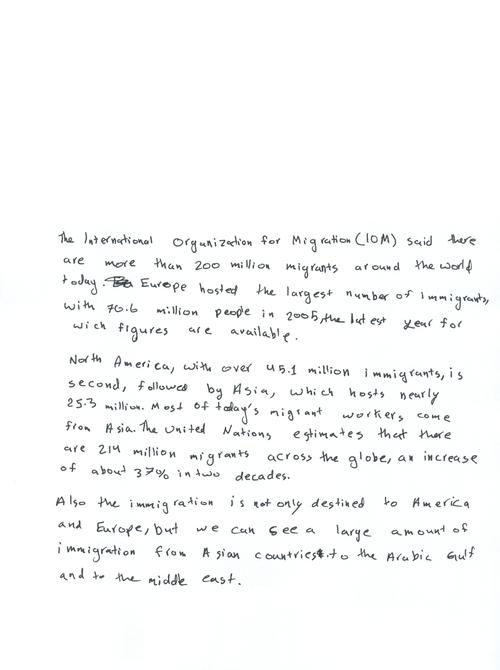 The International Organization for Migration (IOM) said there
are more than 200 million migrants around the world
today. Europe hosted the largest number of immigrants,
with 70.6 million people in 2005, the latest year for
wich figures are available.
North America, with over 45.1 million immigrants, is
second, followed by Asia, which hosts nearly
25.3 million. Most of today's migrant workers come
from Asia. The United Nations estimates that there
are 214 million migrants across the globe, an increase
of about 37% in two decades.
Also the immigration is not only destined to America
and Europe, but we can see a large amount of
immigration from Asian countries to the Arabic Gulf
and to the middle east.